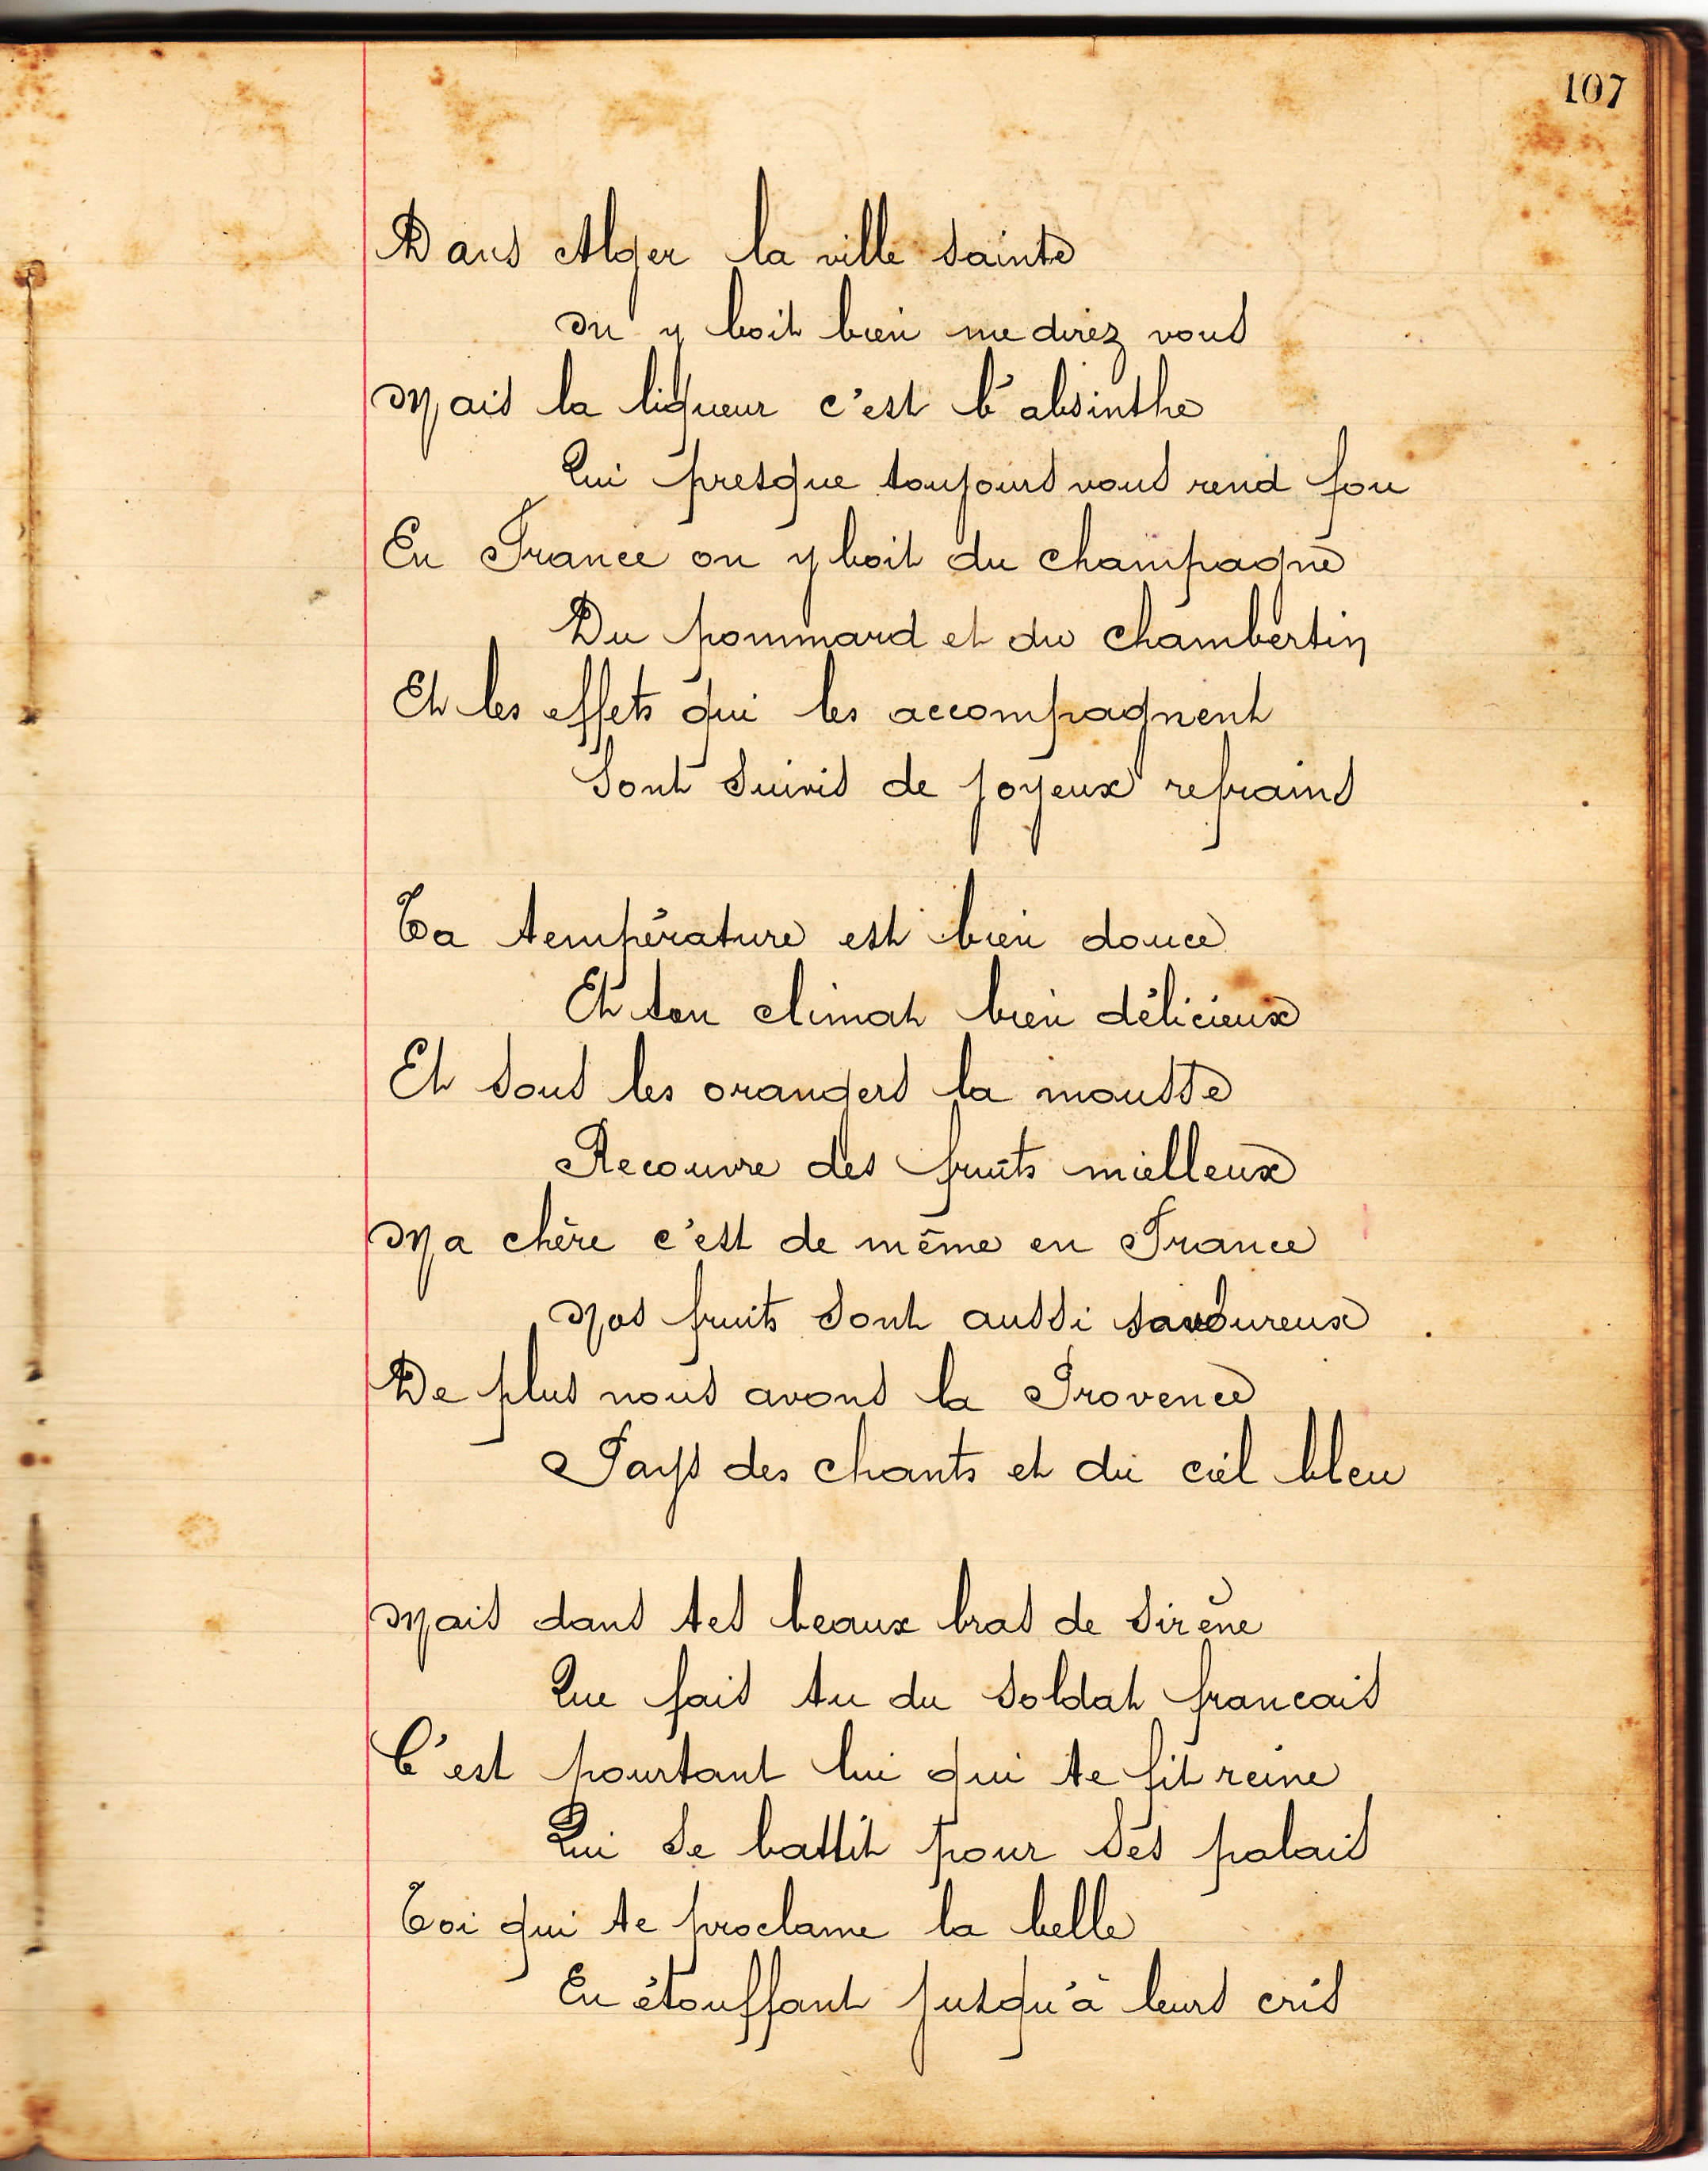 107
Dans Alger la ville sainte
On y boit bien me direz vous
Mais la liqueur c'est l'absinthe
Qui presque toujours vous rend fou
En France on y boit du champagne
Du pommard et du chambertin
Et les effets qui les accompagnent
Sont suivis de joyeux refrains
Ta température est bien douce
Et ton climat bien délicieux
Et sous les orangers la mousse
Recouvre des fruits mielleux
Ma chère c'est de même en France
Nos fruits sont aussi savoureux
De plus nous avons la Provence
Pays des chants et du ciel bleu
Mais dans tes beaux bras de sirène
Que fais tu du soldat francais
C'est pourtant lui qui te fit reine
Qui se battit pour ses palais
Toi qui te proclame la belle
En étouffant jusqu'à leurs cris